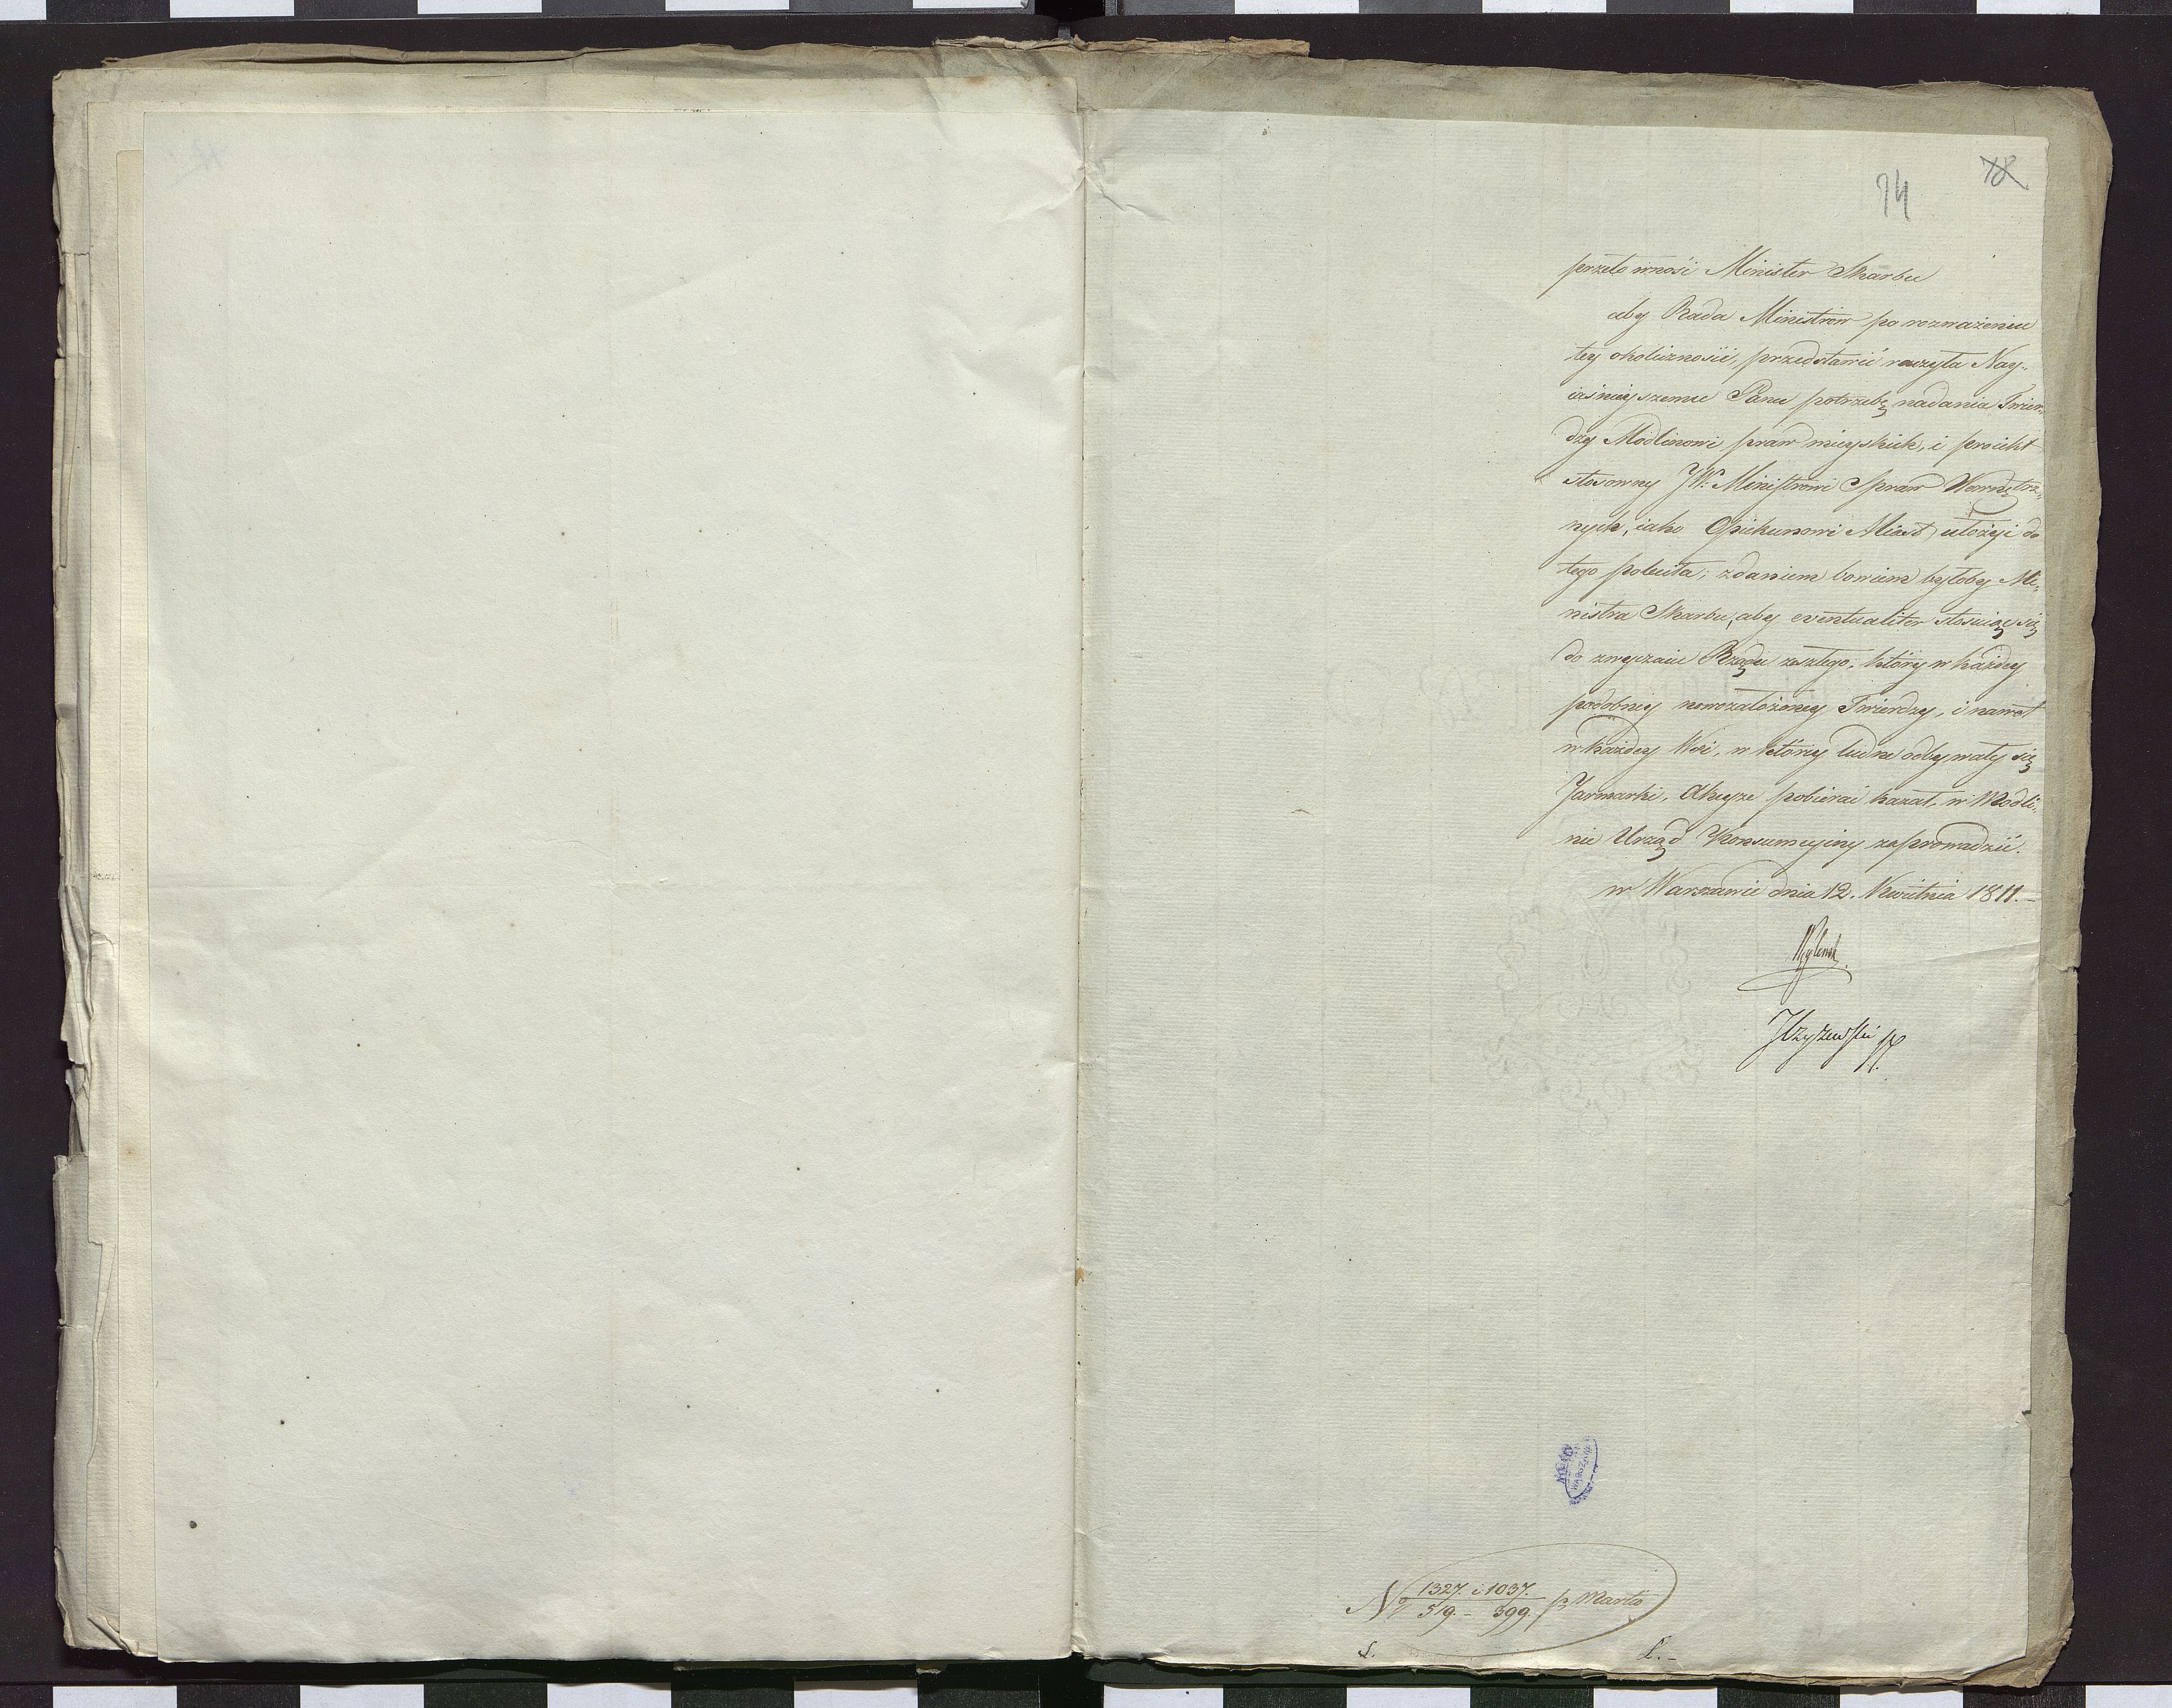 78
74
przeto wnosi Minister Skarbu
aby Rada Ministrow po rozważeniu
tey okolicznosći, przedstawić raczyła Nay-
iaśnieyszemu Panu potrzebę nadania Twier-
dzy Modlinowi praw mieyskich, i proiekt
stosowny JW. Ministrowi Spraw Wewnętrz-
nych, iako Opiekunowi Miast ułożyć do
tego poleciła; zdaniem bowiem byłoby Mi-
nistra Skarbu, aby eventualiter stosuiąc się
do zwyczaiu Rządu zeszłego, który w każdey
podobney nowozałożoney Twierdzy, i nawet
w każdey Wsi, w którey ludne odbywały się
Jarmarki, Akcyze pobierać kazał, w Modli-
nie Urząd Konsumcyiny zaprowadzić.
w Warszawie dnia 12. Kwietnia 1811.-
N 1327. i 1037.
519.- 399. p Martio
L.-